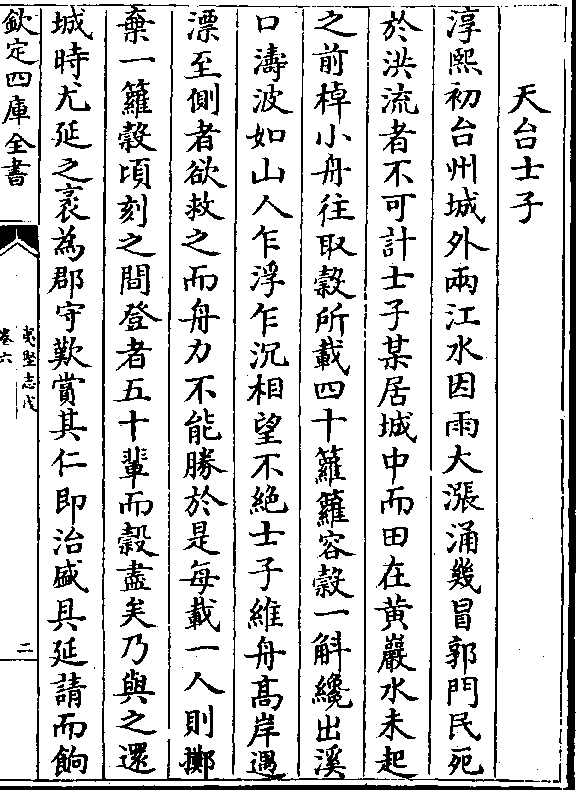 天台士子
淳熙初台州城外兩江水因雨大漲涌幾冒郭門民死
於洪流者不可計士子某居城中而田在黃巖水未起
之前棹小舟往取穀所載四十籮籮容穀一斛纔出溪
口濤波如山人乍浮乍沉相望不絶士子維舟髙岸遇
漂至側者欲救之而舟力不能勝於是每載一人則擲
棄一籮穀頃刻之間登者五十輩而穀盡矣乃與之還
城時尤延之袤為郡守歎賞其仁即治盛具延請而餉
欽定四庫全書
夷堅志戊
卷六
二